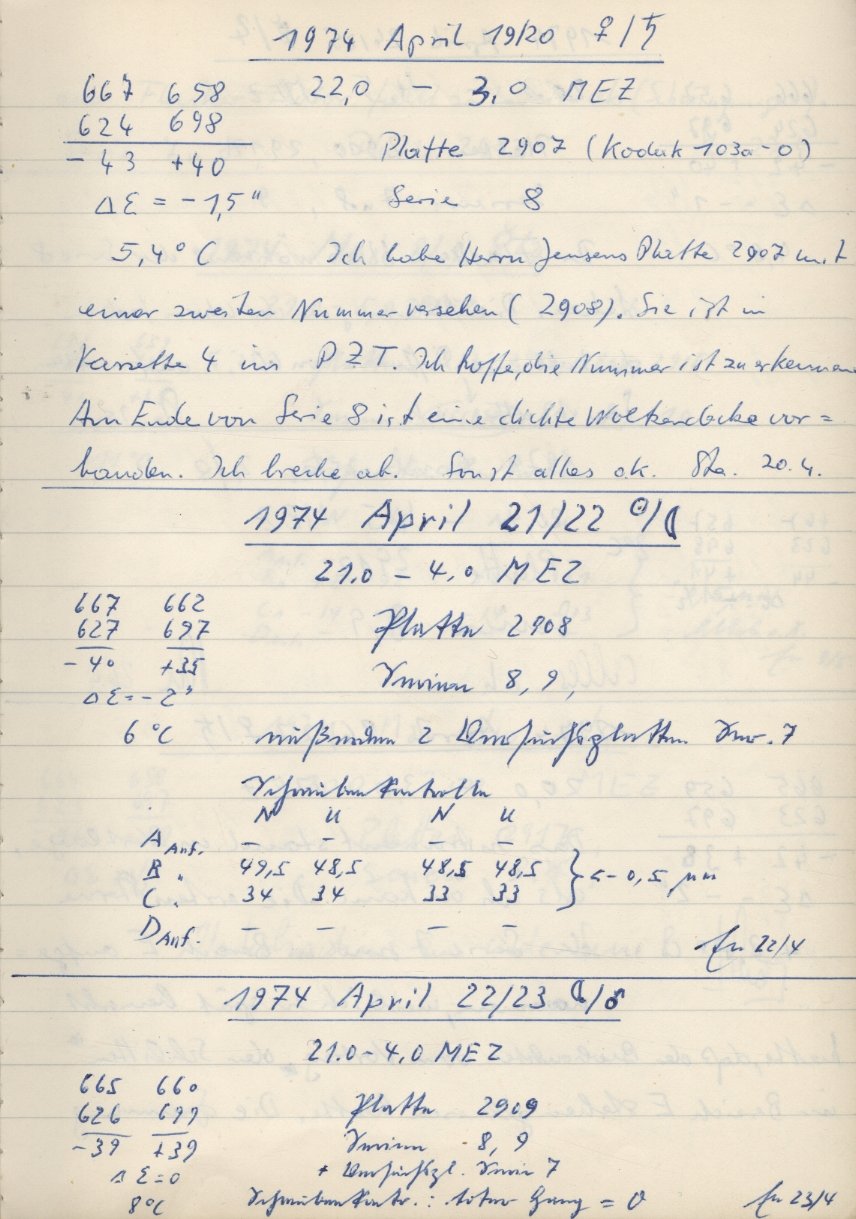 1974 April 19/20 ♀/♄
667 658 22,0 – 3,0 MEZ
624 698
- 43 +40 Platte 2907 (Kodak 103a-0)
ΔE = -1,5" Serie 8
5,4°C Ich habe Herrn Jensens Platte 2907 mit
einer zweiten Nummer versehen (2908). Sie ist in
Kassette 4 im PZT. Ich hoffe, die Nummer ist zu erkennen
Am Ende von Serie 8 ist eine dichte Wolkendecke vor=
handen. Ich breche ab. Sonst alles ok. Sta. 20.4.
1974 April 21/22 ☉/☾
21.0 – 4.0 MEZ
667 662
627 697 Platte 2908
-40 +35
ΔE = -2" Serien 8, 9,
6°C außerdem 2 Versuchsplatten Ser. 7
Schraubenkontrolle
N U N U
A Anf. – – – –
B " 49,5 48,5 48,5 48,5
C " 34 34 33 33 } ≤ -0,5 μm
D Anf. – – – –
22/4
1974 April 22/23 ☾/♂
21.0-4.0 MEZ
665 660
626 699 Platte 2909
-39 +39 Serien 8, 9
ΔE=0 + Versuchspl. Serie 7
8°C Schraubenkontr.: toter Gang = 0 23/4